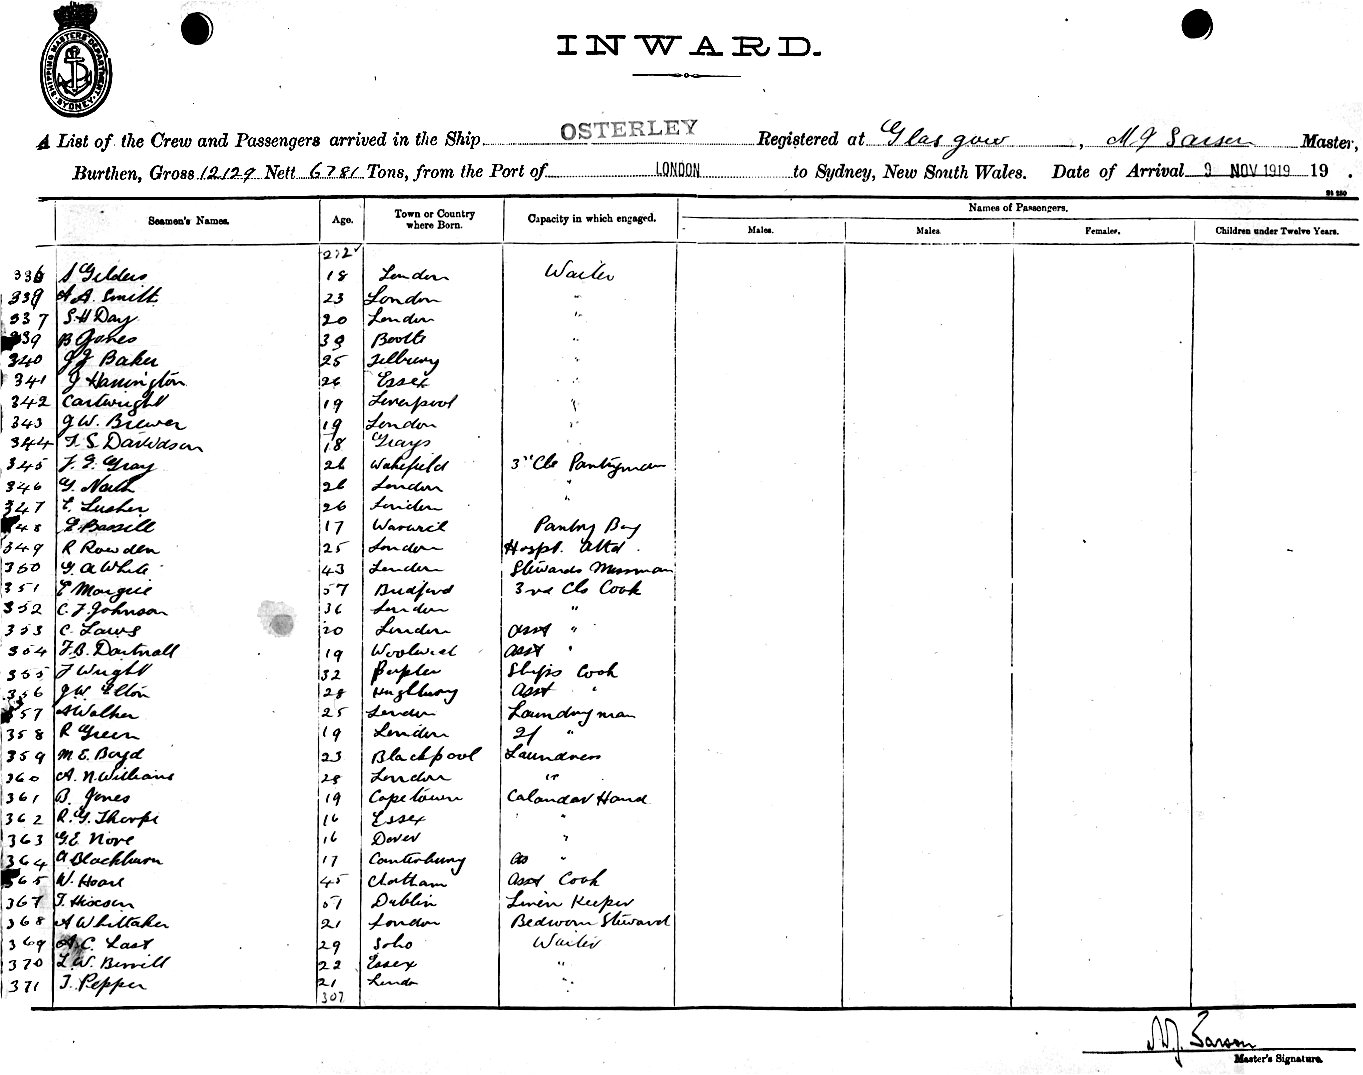 SHIPPING MASTERS DEPARTMENT SYDNEY
INWARD.
A List of the Crew and Passengers arrived in the Ship OSTERLEY Registered at Glasgow, Master,
Burthen, Gross 12129 Nett 6781 Tons, from the Port of LONDON to Sydney, New South Wales. Date of Arrival 9 NOV 1919 19 .
Seamen's Names. Age. Town or Country where Born. Capacity in which engaged. Names of Passengers.
Males. Males. Females. Children under Twelve Years.
272
336 S Gelders 18 London Waiter
339 A A. Smith 23 London "
337 S. H Day 20 London "
339 B Jones 39 Bootle "
340 J J Baker 25 Tilbury "
341 J Hannington 26 Essex "
342 Cartwright 19 Liverpool "
343 J W. Brewer 19 London "
344 F. S. Davidson 18 Grays "
345 F. G. Gray 26 Wakefield 3rd Cls Pantryman
346 G. Nash 26 London "
347 E. Lusher 26 London "
348 E Bassill 17 Warwick Pantry Boy
349 R Rowden 25 London Hospl. Attd.
350 G A White 43 London Stewards Messman
351 E 57 Bedford 3rd Cls Cook
352 C. F. Johnson 36 London "
353 C. Laws 20 London Asst "
354 F. B. Dartnall 19 Woolwich Asst "
355 F Wright 32 Poplar Ships Cook
356 J W. Elton 28 Highbury Asst "
357 A Walker 25 London Laundryman
358 R Green 19 London 2/ "
359 M. E. Boyd 23 Blackpool Laundress
360 A. N. Williams 28 London "
361 B. Jones 19 Cape town Calandar Hand
362 R. G. Thorpe 16 Essex "
363 G. E Nove 16 Dover "
364 A Blackburn 17 Canterbury as "
365 W. Hoare 45 Chatham Asst Cook
367 T. Hixson 51 Dublin Linen Keeper
368 A Whittaker 21 London Bedroom Steward
369 A. C. Last 29 Soho Waiter
370 L. W. Berrill 22 Essex "
371 T. Pepper 21 London "
307
Sarson
Master's Signature.